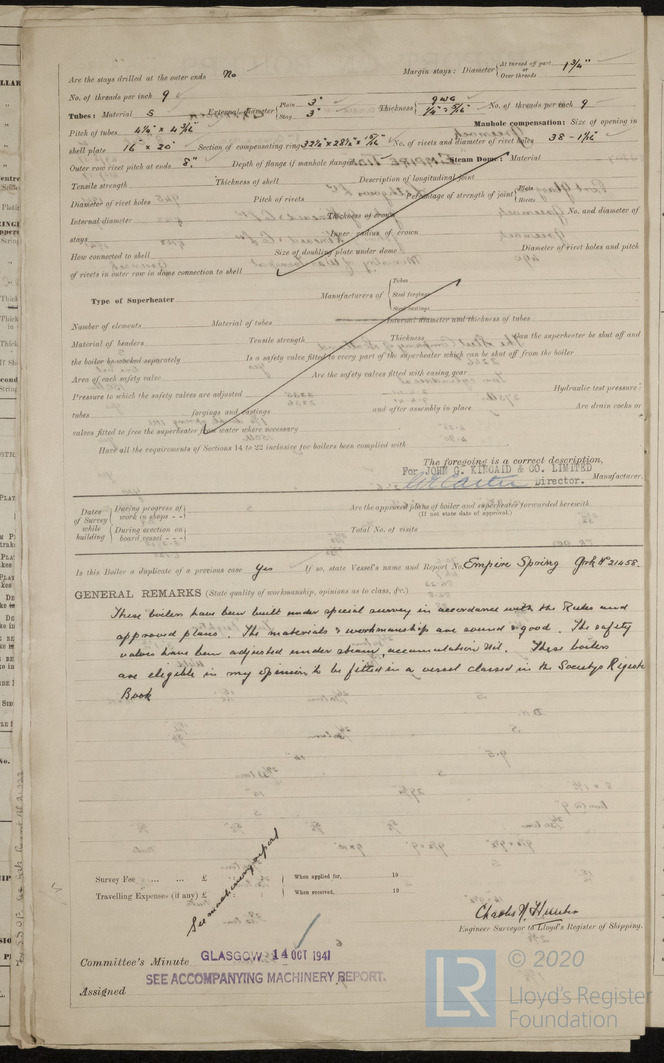 Are the stays drilled at the outer ends No Margin stays: Diameter { At turned off part or Over threads 1 3/4"
No. of threads per inch 9
Tubes: Material S External diameter { Plain 3" Stay 3" Thickness { 9 WG 1/4" & 5/16" No. of threads per inch 9
Pitch of tubes 4 1/4" x 4 3/16" Manhole compensation: Size of opening in
shell plate 16" x 20" Section of compensating ring No. of rivets and diameter of rivet holes 38 - 1 5/16"
Outer row rivet pitch at ends 8" Depth of flange if manhole flanged Steam Dome: Material
Tensile strength Thickness of shell Description of longitudinal joint
Diameter of rivet holes Pitch of rivets Percentage of strength of joint { Plate Rivets
Internal diameter Thickness of crown No. and diameter of
stays Inner radius of crown
How connected to shell Size of doubling plate under dome Diameter of rivet holes and pitch
of rivets in outer row in dome connection to shell
Type of Superheater Manufacturers of { Tubes Steel forgings Steel castings
Number of elements Material of tubes Internal diameter and thickness of tubes
Material of headers Tensile strength Thickness Can the superheater be shut off and
the boiler be worked separately Is a safety valve fitted to every part of the superheater which can be shut off from the boiler
Area of each safety valve Are the safety valves fitted with easing gear
Pressure to which the safety valves are adjusted Hydraulic test pressure:
tubes forgings and castings and after assembly in place Are drain cocks or
valves fitted to free the superheater from water where necessary
Have all the requirements of Sections 14 to 22 inclusive for boilers been complied with
The foregoing is a correct description,
For JOHN G. KINCAID & CO. LIMITED
Director. Manufacturer.
Dates of Survey while building { During progress of work in shops - - During erection on board vessel - - -
Are the approved plans of boiler and superheater forwarded herewith
(If not state date of approval.)
Total No. of visits
Is this Boiler a duplicate of a previous case Yes If so, state Vessel's name and Report No. Empire Spring Grk No 21458.
GENERAL REMARKS (State quality of workmanship, opinions as to class, &c.)
These boilers have been built under special survey in accordance with the Rules and
approved plans. The materials & workmanship are sound & good. The safety
valves have been adjusted under steam, accumulation Nil. These boilers
are eligible in my opinion to be fitted in a vessel classed in the Society's Register
Book
See machinery report
Survey Fee ... ... £ When applied for, 19
Travelling Expenses (if any) £ When received, 19
Charles H. Hunter
Engineer Surveyor to Lloyd's Register of Shipping.
Committee's Minute GLASGOW 14 OCT 1941
SEE ACCOMPANYING MACHINERY REPORT.
Assigned
LR © 2020
Lloyd's Register
Foundation